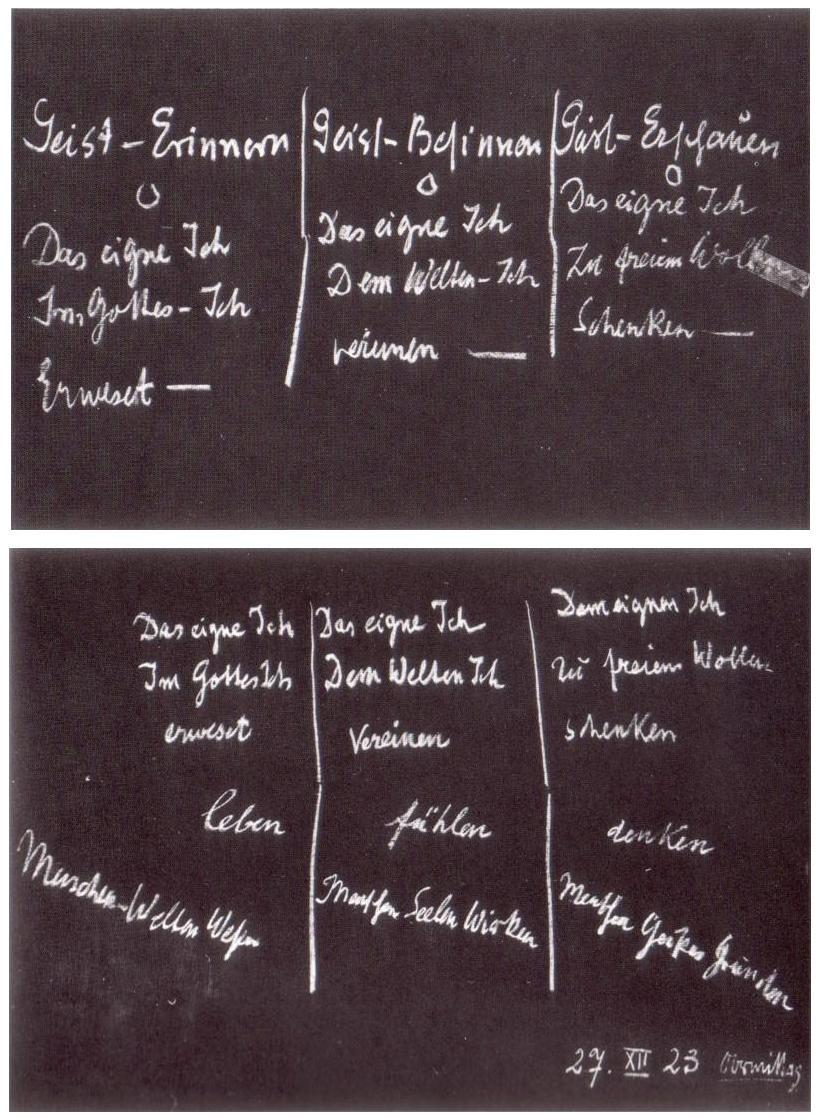 Geist-Erinnern
Das eigne Ich
Im Gottes-Ich
Erweset —
Geist-Besinnen
Das eigne Ich
Dem Welten-Ich
vereinen —
Geist-Erschauen
Das eigne Ich
Zu freiem
Schenken —
Das eigne Ich
Im GottesIch
erweset
leben
Menschen-Welten Wesen
Das eigne Ich
Dem Welten Ich
Vereinen
fühlen
Menschen Seelen Wirken
Dem eignen Ich
zu freiem Wollen
schenken
denken
Menschen Geistes Gründen
27. XII 23 Vormittag